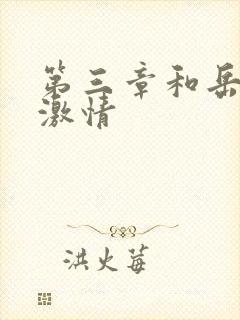 第三章和岳
激情
洪火莓